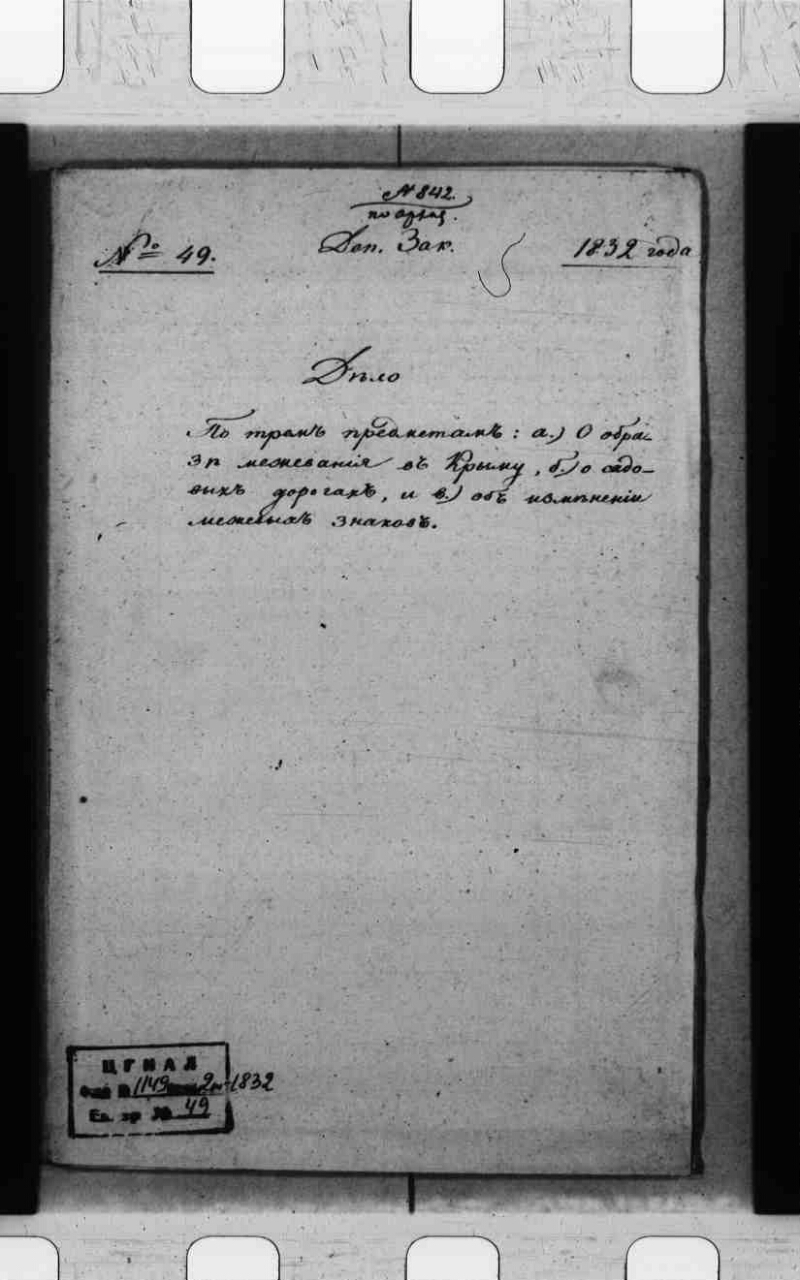 № 842.
по архив.
№ 49.
Деп. Зак.
1832 года
Дѣло
По тремъ предметамъ: а.) О обра-
зѣ межеванія въ Крыму, б.) о садо-
выхъ дорогахъ, и в.) объ измѣненіи
межевыхъ знаковъ.
ЦГИАЛ
Фонд № 1149 2 1832
Ед. хр № 49